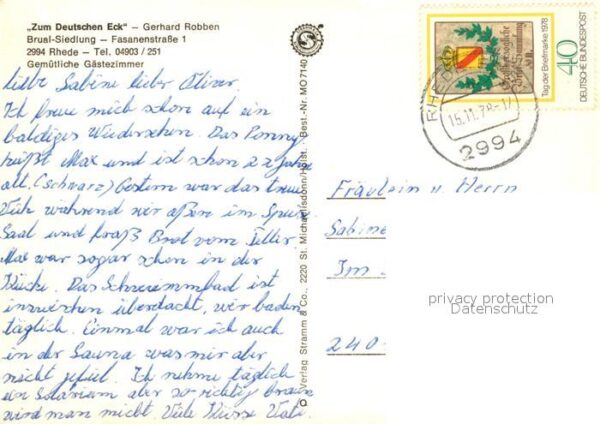 „Zum Deutschen Eck“ – Gerhard Robben
Brual-Siedlung – Fasanenstraße 1
2994 Rhede – Tel. 04903 / 251
Gemütliche Gästezimmer
liebe Sabine lieber Oliver.
Ich freue mich schon auf ein
baldiges Wiedersehen. Das Ponny
heißt Max und ist schon 22 Jahre
alt. (schwarz) Gestern war das treue
Vieh während wir aßen im Speise
Saal und fraß Brot vom Teller
Max war sogar schon in der
Küche. Das Schwimmbad ist
inzwischen überdacht, wir baden
täglich. Einmal war ich auch
in der Sauna was mir aber
nicht gefiel. Ich nehme täglich
ein Solarium aber so richtig braun
wird man nicht. Viele Küsse Vati.
Verlag Stramm & Co., 2220 St. Michaelisdonn/Holst. Best.-Nr. MO 7140
Tag der Briefmarke 1978
40
DEUTSCHE BUNDESPOST
15.11.78-17
2994
Fräulein u Herrn
Sabine
Im
240
privacy protection
Datenschutz